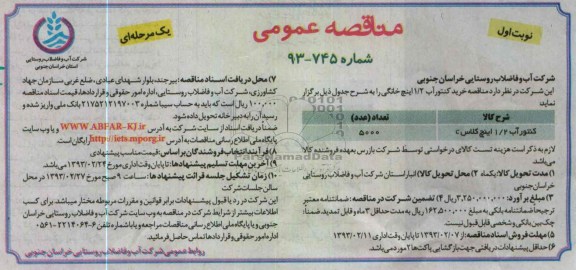 نوبت اول
مناقصه عمومی
یک مرحله‌ای
شماره ۷۴۵-۹۳
شرکت آب و فاضلاب روستایی
استان خراسان جنوبی
شرکت آب و فاضلاب روستایی خراسان جنوبی
این شرکت در نظر دارد مناقصه خرید کنتور آب ۱/۲ اینچ خانگی را به شرح جدول ذیل برگزار
نماید
شرح کالا تعداد (عدد)
کنتور آب ۱/۲ اینچ کلاس C ۵۰۰۰
لازم به ذکر است هزینه تست کالای درخواستی توسط شرکت بازرس به عهده فروشنده کالا
می‌باشد
۱) مدت تحویل کالا: یکماه ۲) محل تحویل کالا: انبار استان شرکت آب و فاضلاب روستایی
خراسان جنوبی
۳) مبلغ برآورد: ۳,۲۵۰,۰۰۰,۰۰۰ ریال ۴) تضمین شرکت در مناقصه: ضمانتنامه معتبر
ترجیحا ضمانتنامه بانکی به مبلغ ۱۶۲,۵۰۰,۰۰۰ ریال به مدت حداقل ۳ ماه و قابل تمدید. ضمناً:
چک بین بانکی و شخصی قابل قبول نیست.
۵) مهلت فروش اسناد مناقصه: از ۱۳۹۳/۰۲/۰۷ تا پایان وقت اداری ۱۳۹۳/۰۲/۱۱
۶) حداقل پیشنهادات دریافتی جهت بازگشایی پاکت‌ها ۲ مورد می‌باشد.
۷) محل دریافت اسناد مناقصه: بیرجند، بلوار شهدای عبادی، ضلع غربی سازمان جهاد
کشاورزی، شرکت آب و فاضلاب روستایی، اداره امور حقوقی و قراردادها، قیمت اسناد مناقصه
۱۰۰,۰۰۰ ریال است که باید به حساب سیبا شماره ۲۱۷۵۲۱۲۱۹۷۰۰۳ بانک ملی واریز شده و
رسید آن را به دبیرخانه تحویل داده شود.
ضمناً دریافت اسناد از سایت شرکت به آدرس www.ABFAR-KJ.ir و یا وب سایت
پایگاه ملی اطلاع رسانی مناقصات به آدرس http://iets.mporg.ir رایگان است
۸) برآیند انتخاب فروشندگان بر اساس: قیمت مناسب پیشنهادی
۹) آخرین مهلت تسلیم پیشنهادها: تا پایان وقت اداری مورخ ۱۳۹۳/۰۲/۲۴ می‌باشد.
۱۰) زمان تشکیل جلسه قرائت پیشنهادها: ساعت ۹ صبح مورخ ۱۳۹۳/۰۲/۲۷ در محل
سالن جلسات شرکت
این شرکت در رد یا قبول پیشنهادات برابر قوانین و مقررات مربوطه مختار میباشد. برای کسب
اطلاعات بیشتر از شرایط شرکت در مناقصه به وب سایت شرکت آب و فاضلاب روستایی خراسان
جنوبی و یا پایگاه ملی اطلاع رسانی مناقصات مراجعه و یا با شماره تلفن ۶-۲۲۱۴۰۶۴-۰۵۶۱
اداره امور حقوقی و قراردادها تماس حاصل فرمائید.
روابط عمومی شرکت آب و فاضلاب روستایی خراسان جنوبی
ParsNamadData